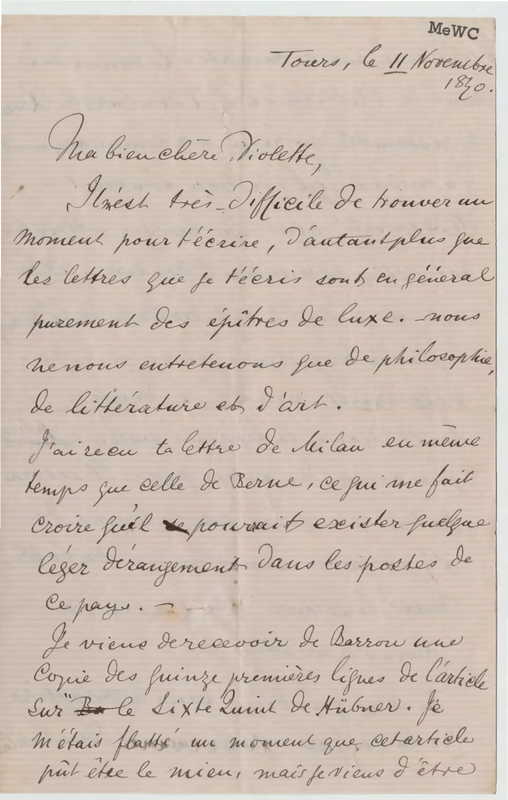 MeWC
Tours, le 11 Novembre
1870.
Ma bien chère Violette,
Il m'est très-difficile de trouver un
moment pour t'écrire, d'autant plus que
les lettres que je t'écris sont en général
purement des épîtres de luxe. - nous
ne nous entretenons que de philosophie,
de littérature et d'art.
J'ai reçu ta lettre de Milan en même
temps que celle de Berne, ce qui me fait
croire qu'il pourrait exister quelque
léger dérangement dans les postes de
ce pays. -
Je viens de recevoir de Barron une
Copie des quinze premières lignes de l'article
sur "le Sixte Quint de Hübner. Je
m'étais flatté un moment que cet article
pût être le mien, mais je viens d'être